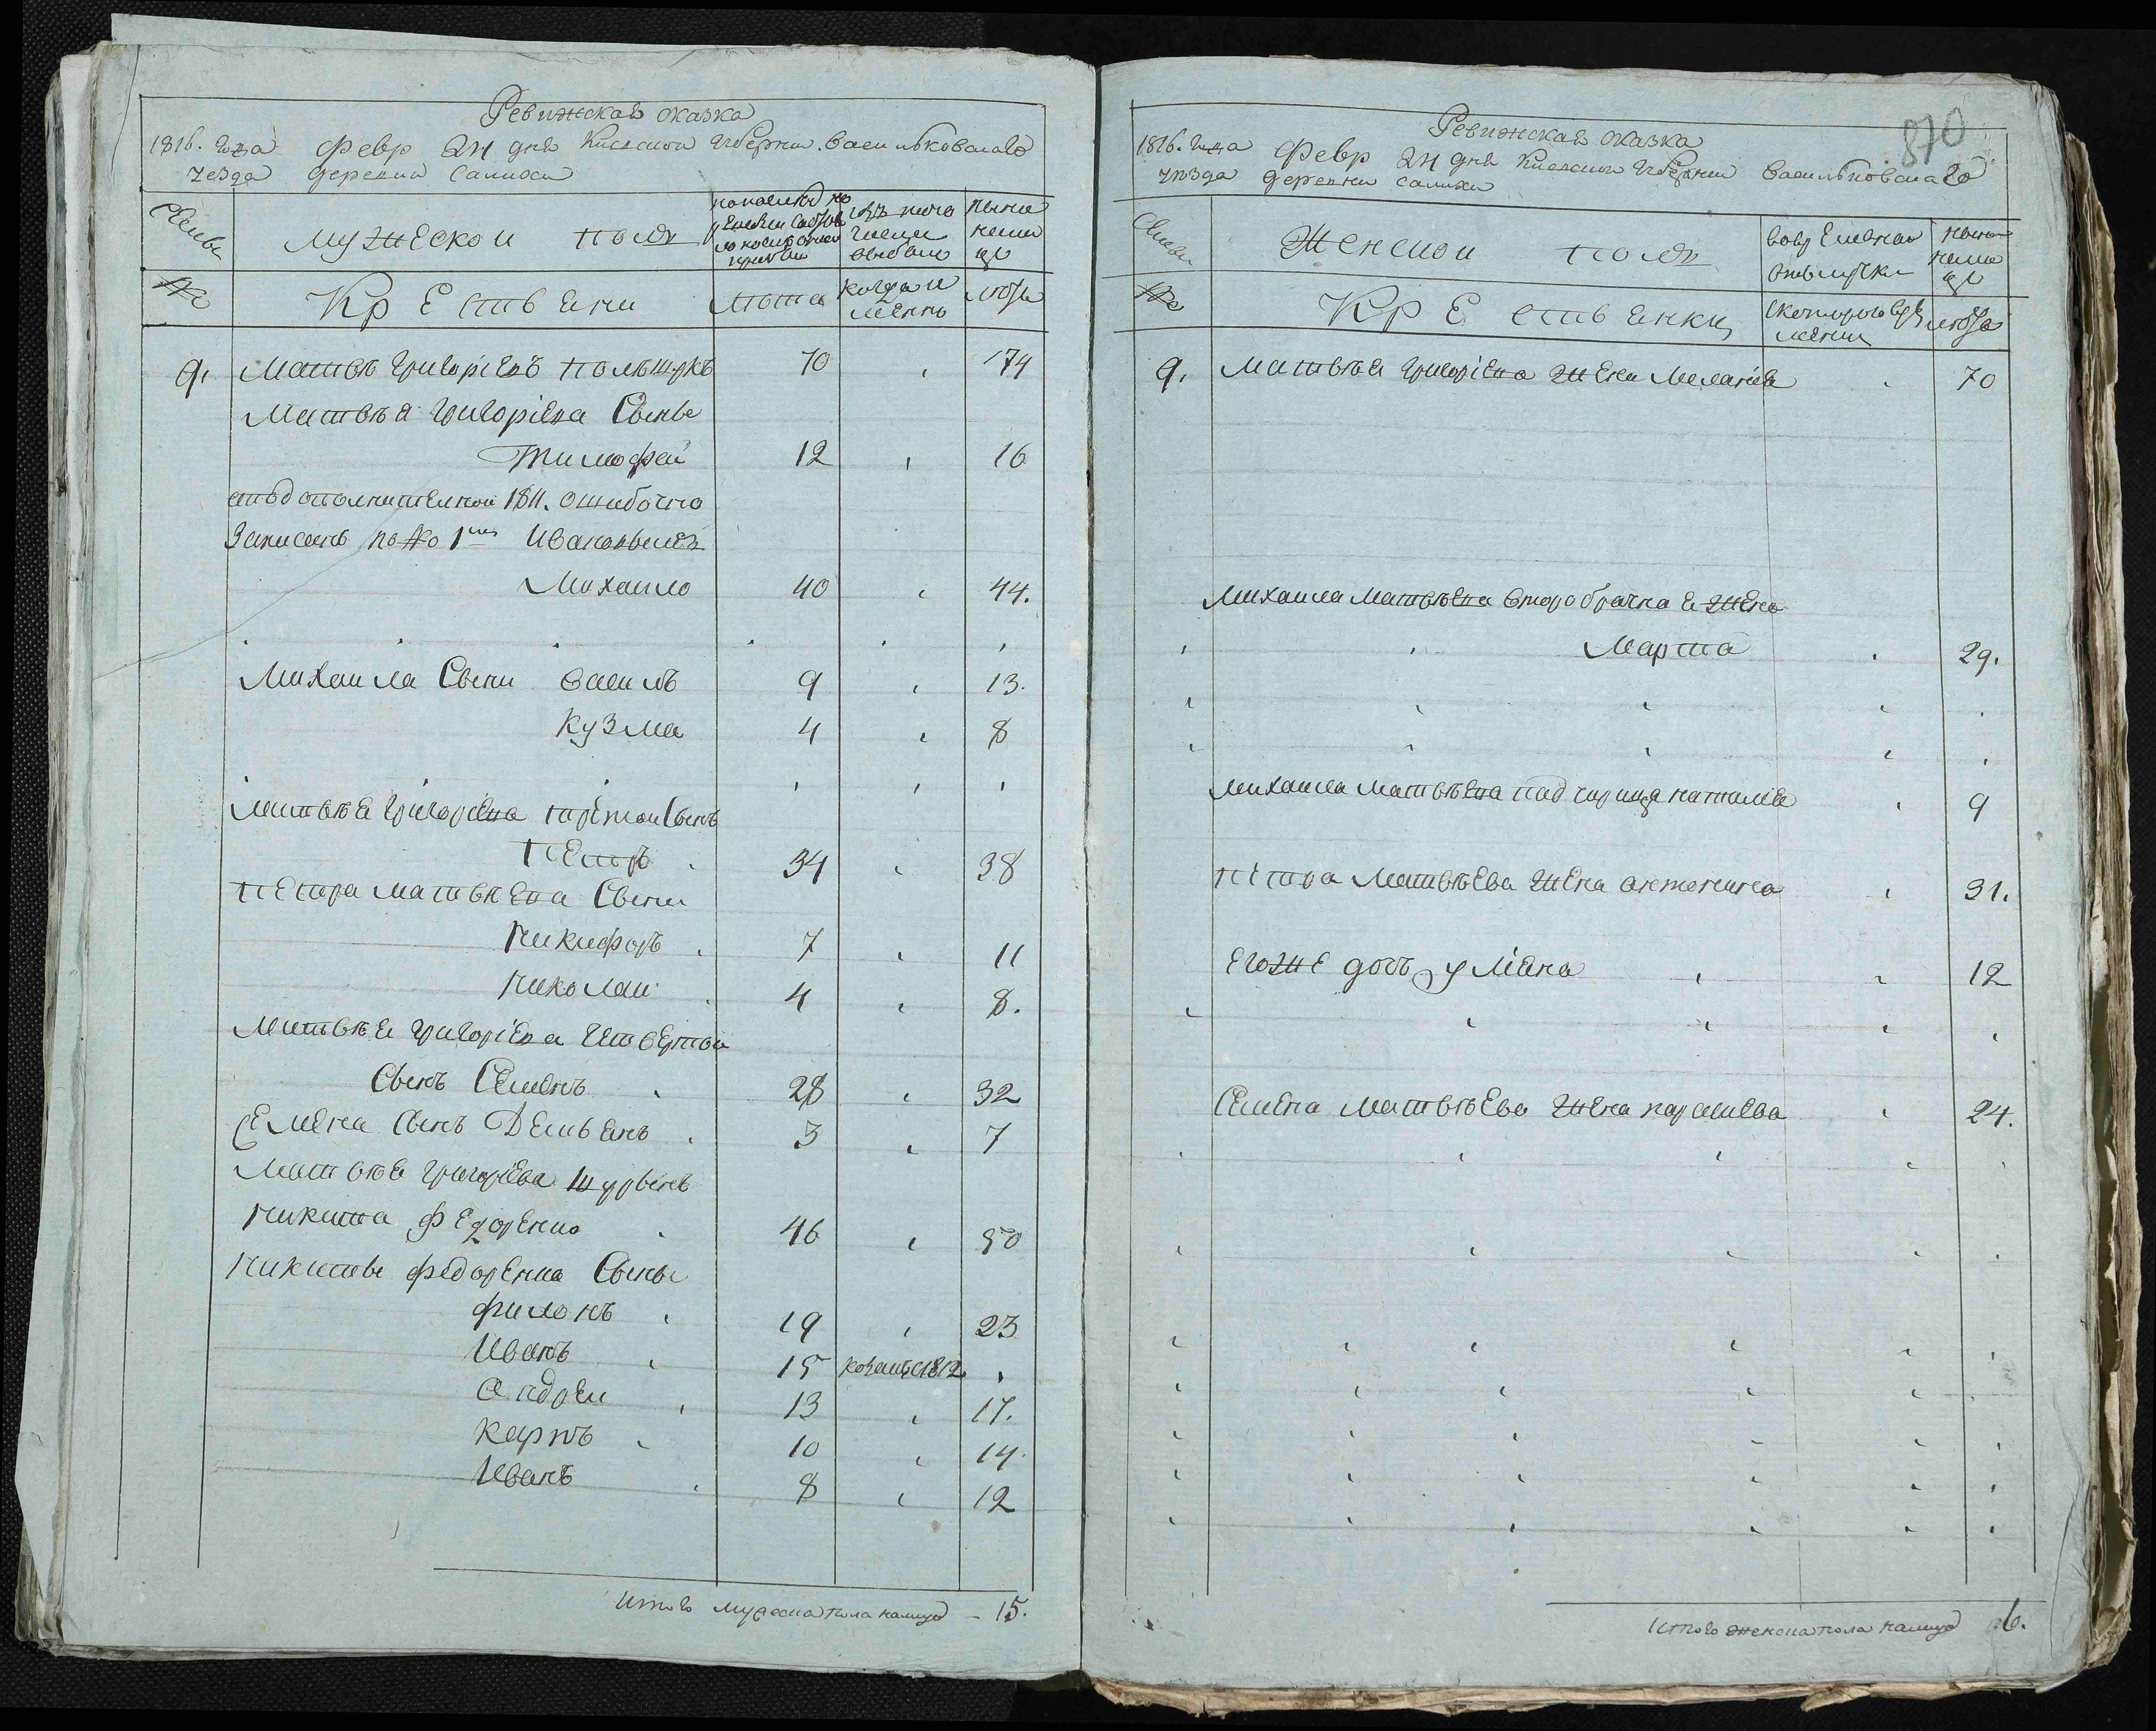 Ревижская сказка
1816. года Февр 24 дня Киевской Губернии Васильковскаго
уезда деревни Салихи
Семьи | мужеской полъ | по последней ревизии состояло и после оной прибыло | изъ того числа выбыло | ныне на лицо
№ | Крестьяни | лета | когда именно | лета
9. Матвѣй григоріевъ полѣщукъ 70 74
Матвѣя григоріева Сыны
Тимофей 12 16
въ дополнителной 1811. ошибочно
Записанъ по №о 1му Ивановымъ
Михаило 40 44.
Михаила Сыны василь 9 13.
кузма 4 8
Матвѣя григоріева третой Сынъ
Петръ 34 38
Петра матвѣева Сыны
Никифоръ 7 11
Николай 4 8.
Матвѣя григоріева четвертой
Сынъ Семенъ 28 32
Семена Сынъ Демьянъ 3 7
Матвѣя григоріева шурынъ
Никита Федоренко 46 50
Никиты федоренка Сыны
филонъ 19 23
Иванъ 15 1812
андрей 13 17.
карпъ 10 14.
Иванъ 8 12
Итого мужеска пола налицо – 15.
870
Ревижская сказка
1816. года Февр 24 дня Киевской Губернии Васильковскаго
уѣзда деревни салихи
Семьи | Женской полъ | во временной отлучки | ныне на лицо
№ | Крестьянки | с котораго времени | лета
9. Матвѣя григоріева жена Меланія 70
Михаила Матвѣева второбрачная жена
Марта 29.
Михаила Матвѣева падчирица наталія 9
петра Матвѣева жена антонина 31.
егоже дочь уліяна 12
Семена Матвѣева жена парасиева 24.
Итого женска пола налицо 6.